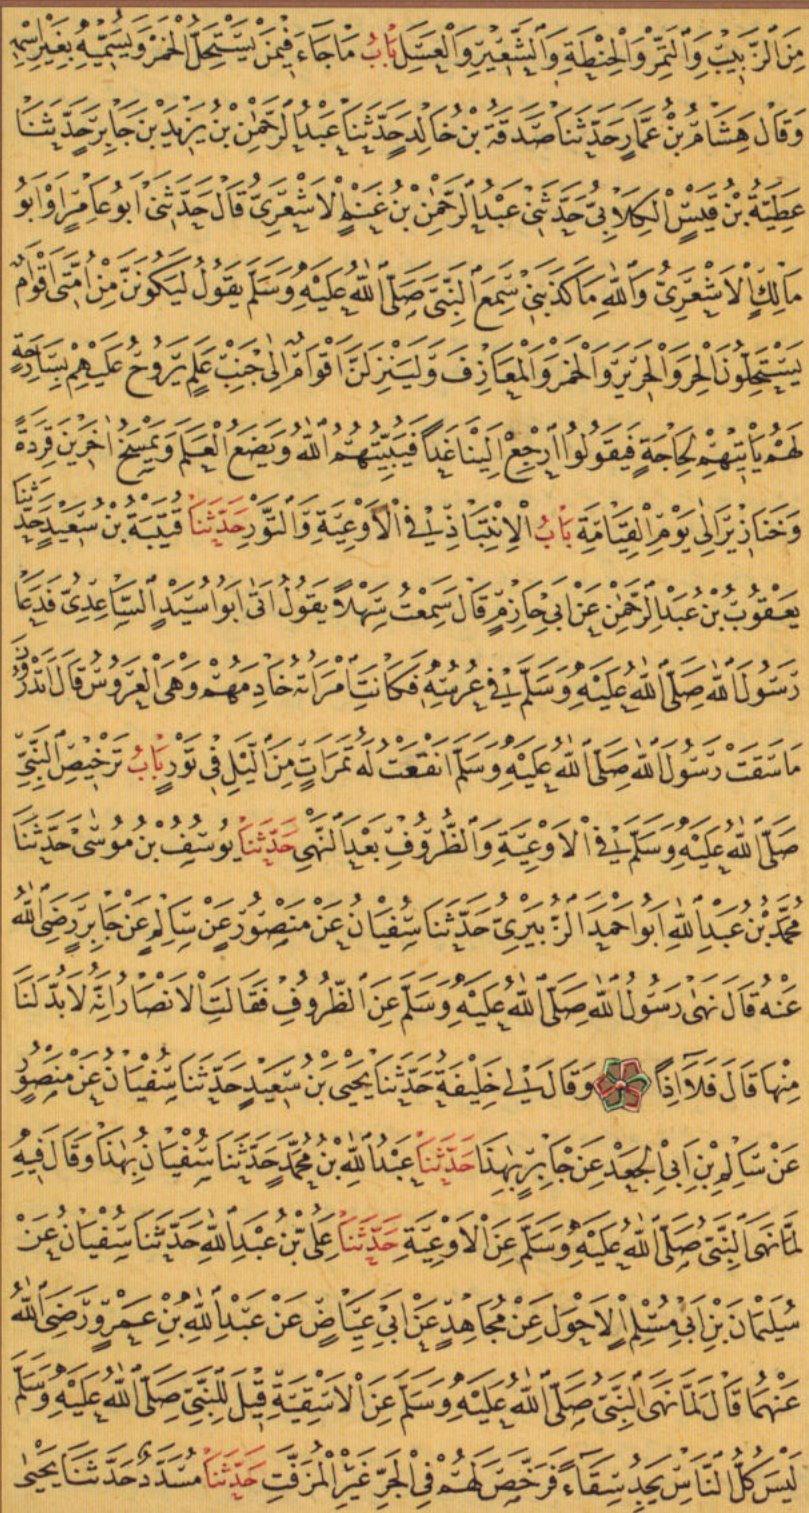 مِنَ الزَّبِيبِ وَالتَّمْرِ وَالْحِنْطَةِ وَالشَّعِيرِ وَالْعَسَلِ بَابُ مَا جَاءَ فِيمَنْ يَسْتَحِلُّ الْخَمْرَ وَيُسَمِّيهِ بِغَيْرِ اسْمِهِ
وَقَالَ هِشَامُ بْنُ عَمَّارٍ حَدَّثَنَا صَدَقَةُ بْنُ خَالِدٍ حَدَّثَنَا عَبْدُ الرَّحْمٰنِ بْنُ يَزِيدَ بْنِ جَابِرٍ حَدَّثَنَا
عَطِيَّةُ بْنُ قَيْسٍ الْكِلَابِيُّ حَدَّثَنِي عَبْدُ الرَّحْمٰنِ بْنُ غَنْمٍ الْاَشْعَرِيُّ قَالَ حَدَّثَنِي اَبُو عَامِرٍ اَوْ اَبُو
مَالِكٍ الْاَشْعَرِيُّ وَاللّٰهِ مَا كَذَبَنِي سَمِعَ النَّبِيَّ صَلَّى اللّٰهُ عَلَيْهِ وَسَلَّمَ يَقُولُ لَيَكُونَنَّ مِنْ اُمَّتِي اَقْوَامٌ
يَسْتَحِلُّونَ الْحِرَ وَالْحَرِيرَ وَالْخَمْرَ وَالْمَعَازِفَ وَلَيَنْزِلَنَّ اَقْوَامٌ اِلٰى جَنْبِ عَلَمٍ يَرُوحُ عَلَيْهِمْ بِسَارِحَةٍ
لَهُمْ يَأْتِيهِمْ لِحَاجَةٍ فَيَقُولُوا ارْجِعْ اِلَيْنَا غَدًا فَيُبَيِّتُهُمُ اللّٰهُ وَيَضَعُ الْعَلَمَ وَيَمْسَخُ اٰخَرِينَ قِرَدَةً
وَخَنَازِيرَ اِلٰى يَوْمِ الْقِيَامَةِ بَابُ الْاِنْتِبَاذِ فِي الْاَوْعِيَةِ وَالتَّوْرِ حَدَّثَنَا قُتَيْبَةُ بْنُ سَعِيدٍ حَدَّثَنَا
يَعْقُوبُ بْنُ عَبْدِ الرَّحْمٰنِ عَنْ اَبِي حَازِمٍ قَالَ سَمِعْتُ سَهْلًا يَقُولُ اَتٰى اَبُو اُسَيْدٍ السَّاعِدِيُّ فَدَعَا
رَسُولَ اللّٰهِ صَلَّى اللّٰهُ عَلَيْهِ وَسَلَّمَ فِي عُرُسِهِ فَكَانَتِ امْرَاَتُهُ خَادِمَهُمْ وَهِيَ الْعَرُوسُ قَالَ اَتَدْرُونَ
مَا سَقَتْ رَسُولَ اللّٰهِ صَلَّى اللّٰهُ عَلَيْهِ وَسَلَّمَ اَنْقَعَتْ لَهُ تَمَرَاتٍ مِنَ اللَّيْلِ فِي تَوْرٍ بَابُ تَرْخِيصِ النَّبِيِّ
صَلَّى اللّٰهُ عَلَيْهِ وَسَلَّمَ فِي الْاَوْعِيَةِ وَالظُّرُوفِ بَعْدَ النَّهْيِ حَدَّثَنَا يُوسُفُ بْنُ مُوسٰى حَدَّثَنَا
مُحَمَّدُ بْنُ عَبْدِ اللّٰهِ اَبُو اَحْمَدَ الزُّبَيْرِيُّ حَدَّثَنَا سُفْيَانُ عَنْ مَنْصُورٍ عَنْ سَالِمٍ عَنْ جَابِرٍ رَضِيَ اللّٰهُ
عَنْهُ قَالَ نَهٰى رَسُولُ اللّٰهِ صَلَّى اللّٰهُ عَلَيْهِ وَسَلَّمَ عَنِ الظُّرُوفِ فَقَالَتِ الْاَنْصَارُ اِنَّهُ لَا بُدَّ لَنَا
مِنْهَا قَالَ فَلَا اِذًا وَقَالَ لِي خَلِيفَةُ حَدَّثَنَا يَحْيَى بْنُ سَعِيدٍ حَدَّثَنَا سُفْيَانُ عَنْ مَنْصُورٍ
عَنْ سَالِمِ بْنِ اَبِي الْجَعْدِ عَنْ جَابِرٍ بِهٰذَا حَدَّثَنَا عَبْدُ اللّٰهِ بْنُ مُحَمَّدٍ حَدَّثَنَا سُفْيَانُ بِهٰذَا وَقَالَ فِيهِ
لَمَّا نَهَى النَّبِيُّ صَلَّى اللّٰهُ عَلَيْهِ وَسَلَّمَ عَنِ الْاَوْعِيَةِ حَدَّثَنَا عَلِيُّ بْنُ عَبْدِ اللّٰهِ حَدَّثَنَا سُفْيَانُ عَنْ
سُلَيْمَانَ بْنِ اَبِي مُسْلِمٍ الْاَحْوَلِ عَنْ مُجَاهِدٍ عَنْ اَبِي عِيَاضٍ عَنْ عَبْدِ اللّٰهِ بْنِ عَمْرٍو رَضِيَ اللّٰهُ
عَنْهُمَا قَالَ لَمَّا نَهَى النَّبِيُّ صَلَّى اللّٰهُ عَلَيْهِ وَسَلَّمَ عَنِ الْاَسْقِيَةِ قِيلَ لِلنَّبِيِّ صَلَّى اللّٰهُ عَلَيْهِ وَسَلَّمَ
لَيْسَ كُلُّ النَّاسِ يَجِدُ سِقَاءً فَرَخَّصَ لَهُمْ فِي الْجَرِّ غَيْرِ الْمُزَفَّتِ حَدَّثَنَا مُسَدَّدٌ حَدَّثَنَا يَحْيٰى